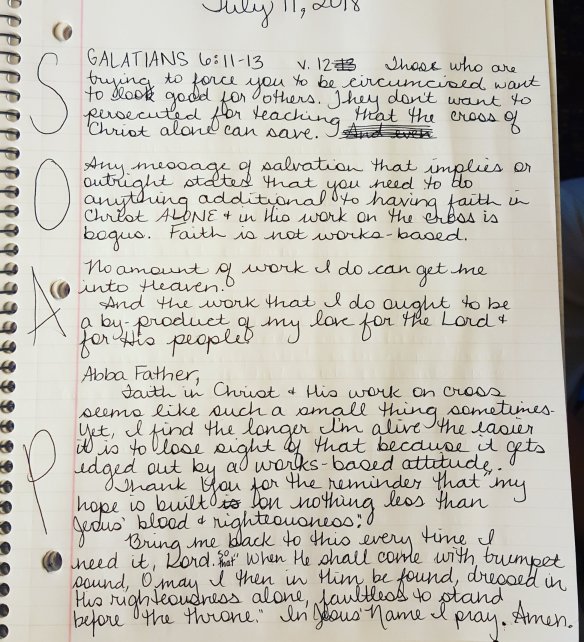 July 11, 2018
S
GALATIANS 6:11-13 v. 12 Those who are
trying to force you to be circumcised want
to look good for others. They don't want to
persecuted for teaching that the cross of
Christ alone can save. And even
O
Any message of salvation that implies or
outright states that you need to do
anything additional to having faith in
Christ ALONE + in His work on the cross is
bogus. Faith is not works-based.
A
No amount of work I do can get me
into Heaven.
And the work that I do ought to be
a by-product of my love for the Lord +
for His people.
P
Abba Father,
Faith in Christ + His work on cross
seems like such a small thing sometimes.
Yet, I find the longer I'm alive the easier
it is to lose sight of that because it gets
edged out by a works-based attitude.
Thank You for the reminder that "my
hope is built is on nothing less than
Jesus' blood + righteousness;"
Bring me back to this every time I
need it, Lord. so that "When He shall come with trumpet
sound, O may I then in Him be found, dressed in
His righteousness alone, faultless to stand
before the throne." In Jesus' Name I pray. Amen.